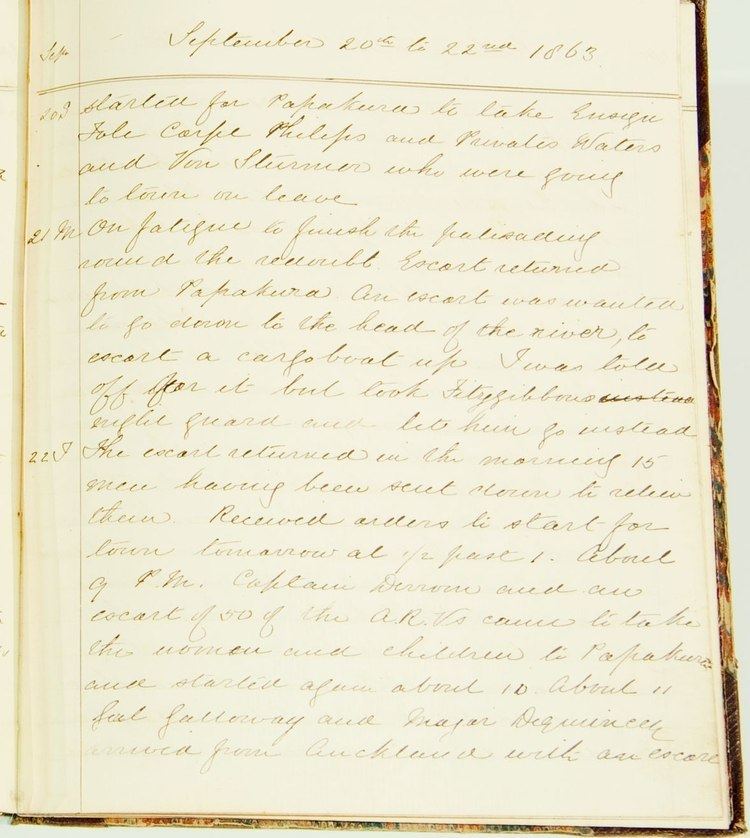 September 20th to 22nd 1863
Sep
20 S started for Papakura to take Ensign
Tole Corpl Philips and Privates Waters
and Von Sturmer who were going
to town on leave
21 M On fatigue to finish the palisading
round the redoubt. Escort returned
from Papakura. An escort was wanted
to go down to the head of the river, to
escort a cargo boat up. I was told
off for it but took Fitzgibbons instead
night guard and let him go instead
22 T The escort returned in the morning 15
men having been sent down to relieve
them. Received orders to start for
town tomorrow at 1/2 past 1. About
9 P.M. Captain Derrom and an
escort of 50 of the A.R.Vs came to take
the women and children to Papakura
and started again about 10. About 11
Galloway and Major Dequincey
arrived from Auckland with an escort